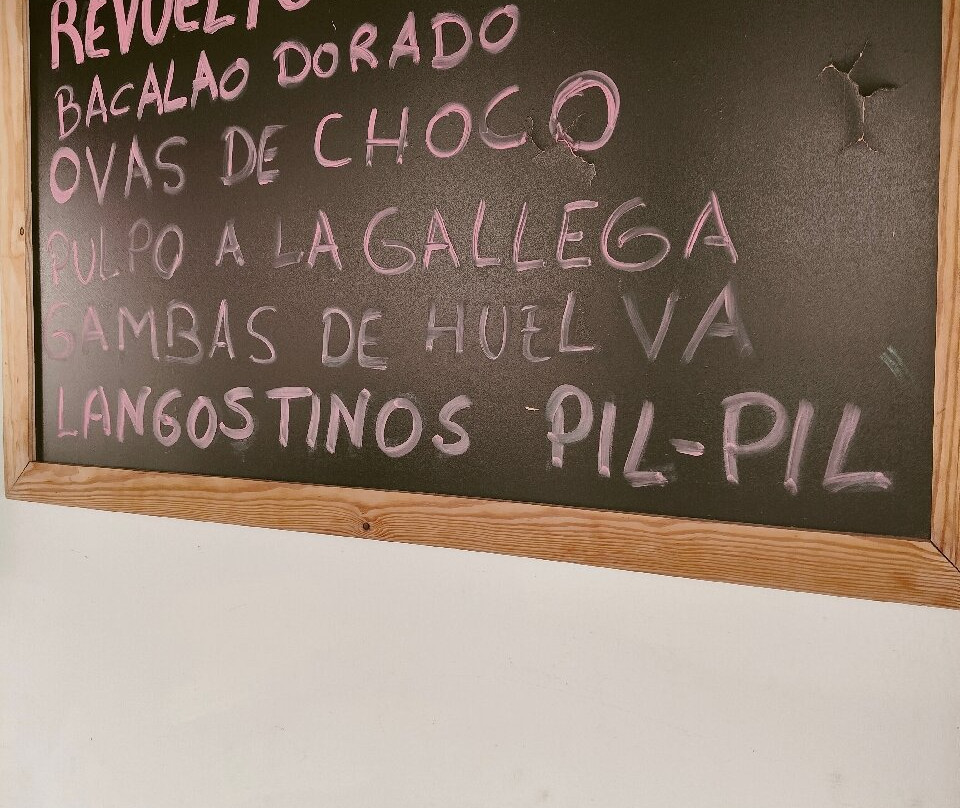 REVUELTO
BACALAO DORADO
OVAS DE CHOCO
PULPO A LA GALLEGA
GAMBAS DE HUELVA
LANGOSTINOS PIL-PIL